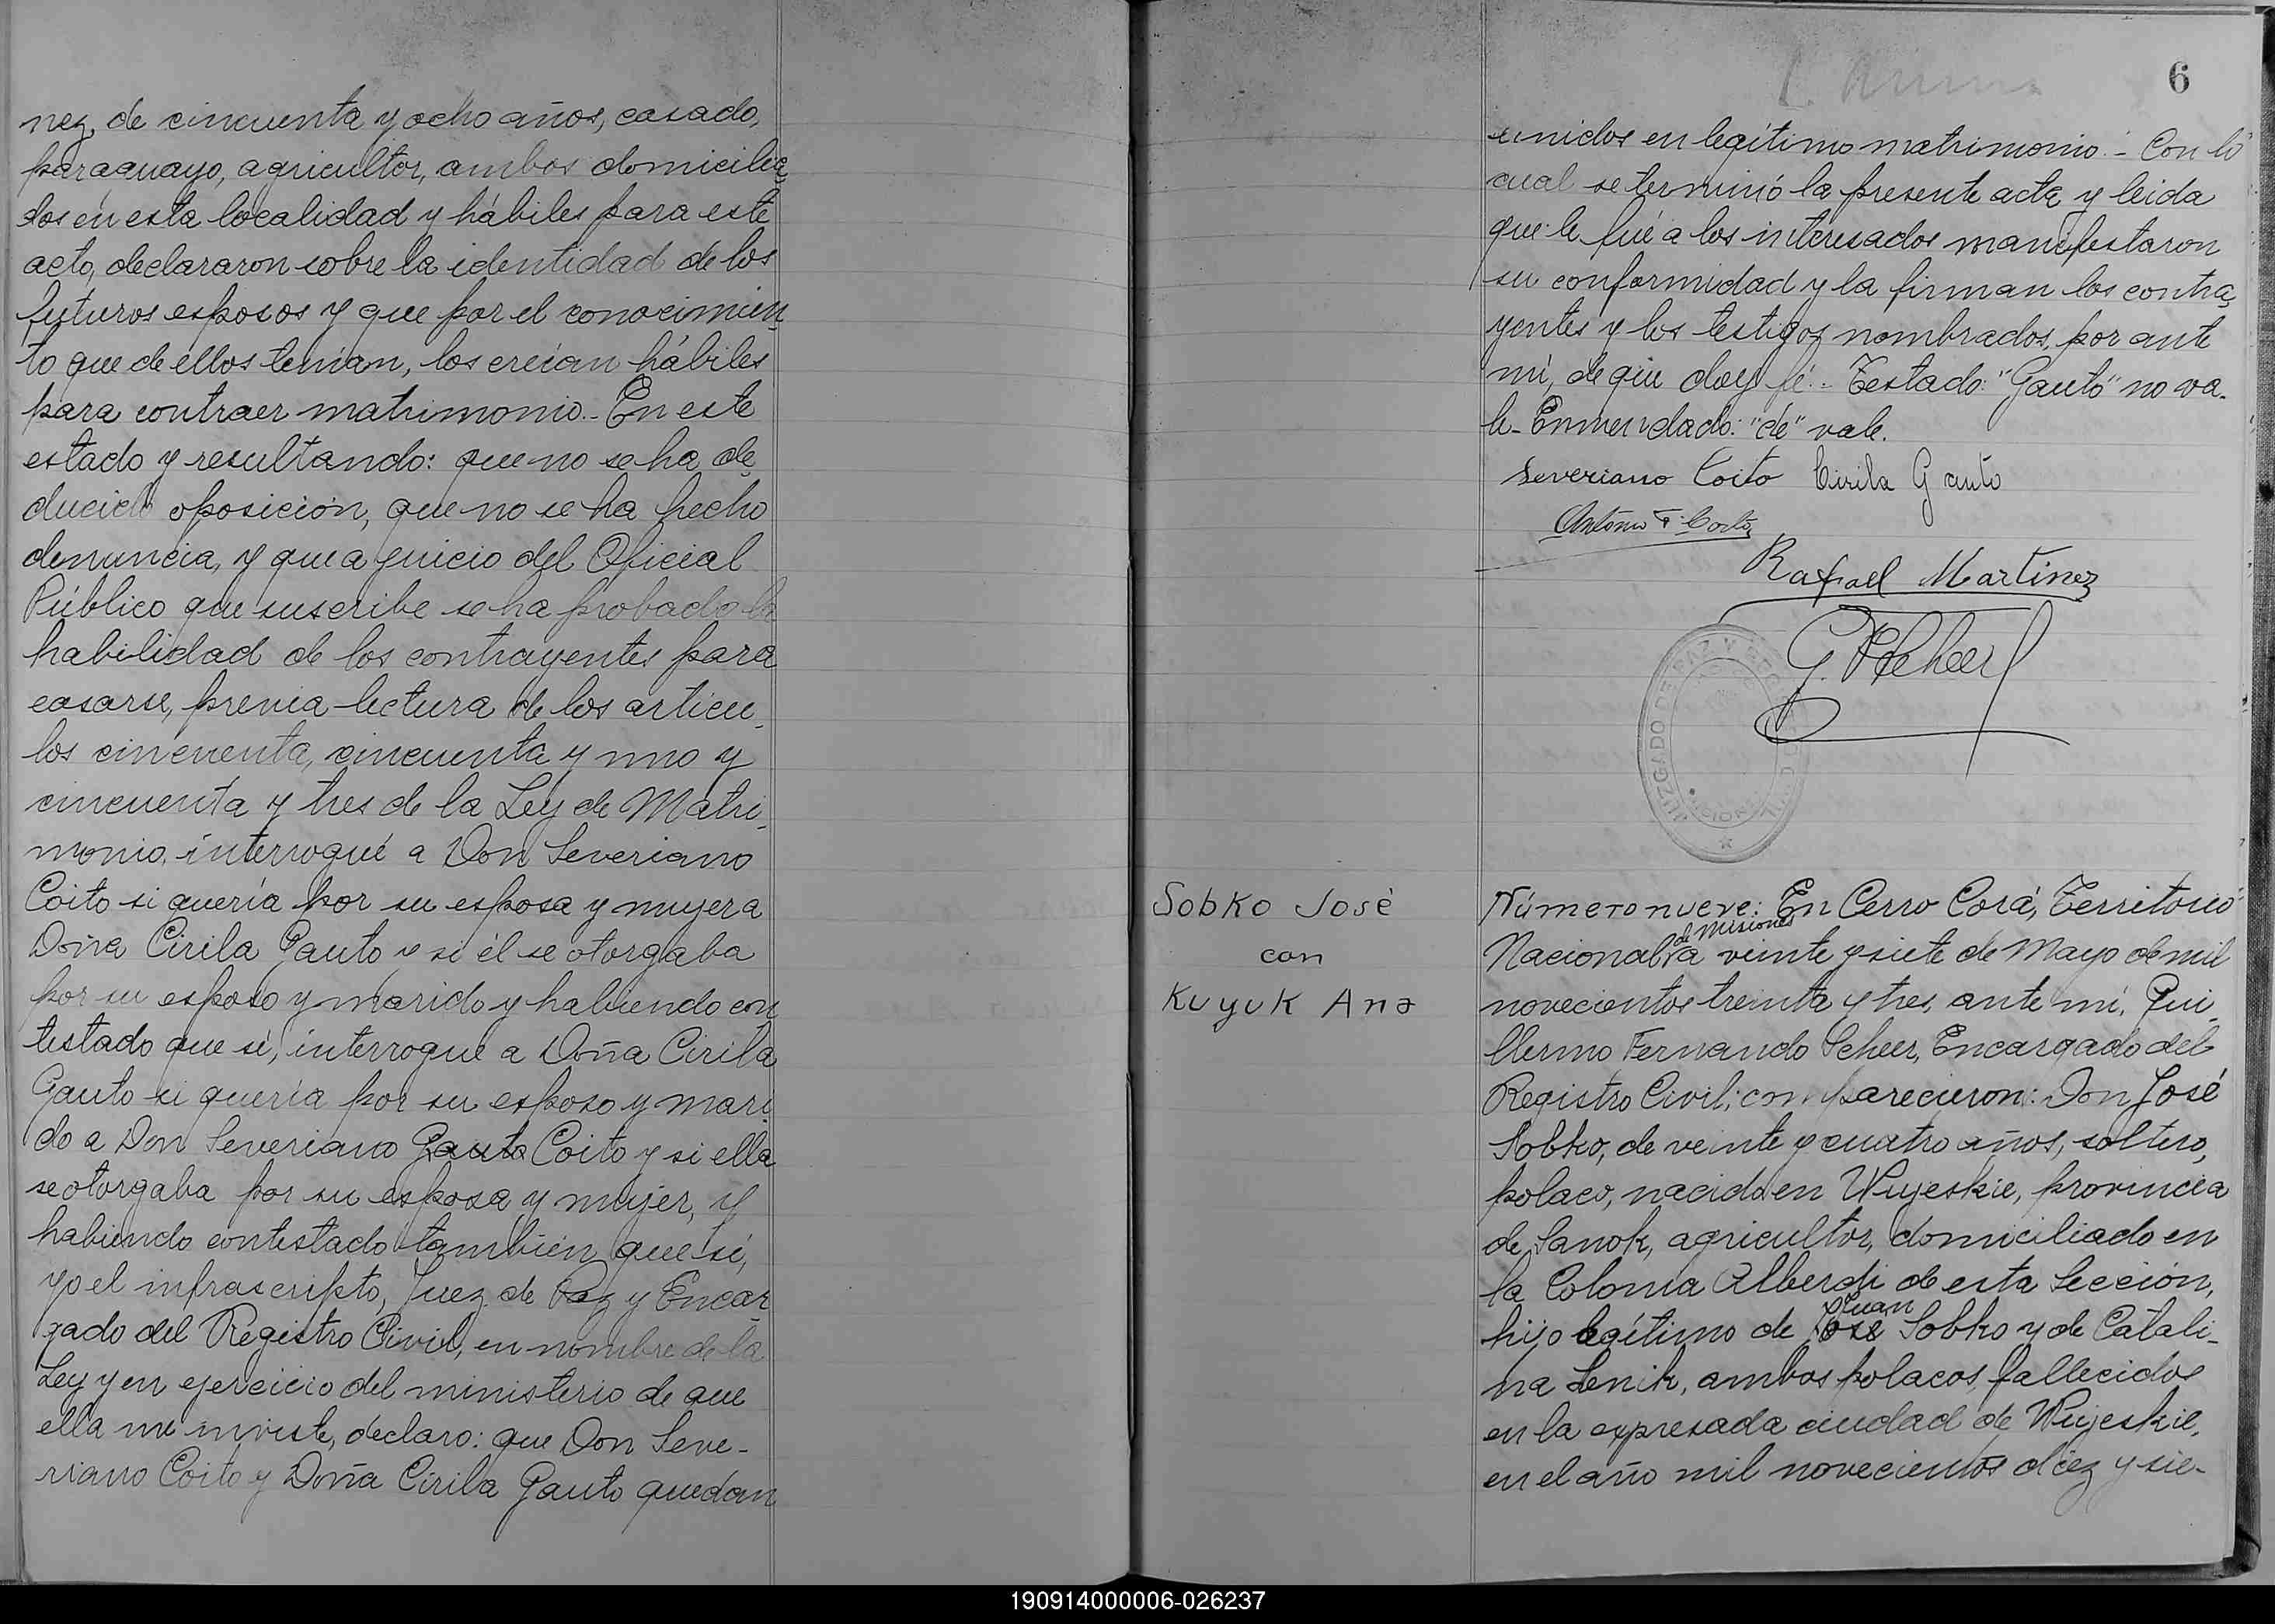 nez, de cincuenta y ocho años, casado,
paraguayo, agricultor, ambos domicilia
dos en esta localidad y hábiles para este
acto, declararon sobre la identidad de los
futuros esposos y que por el conocimien
to que de ellos tenían, los creían hábiles
para contraer matrimonio.- En este
estado y resultando: que no se ha de
ducido oposición, que no se ha hecho
denuncia, y que a juicio del Oficial
Público que suscribe se ha probado la
habilidad de los contrayentes para
casarse, previa lectura de los articu_
los cincuenta, cincuenta y uno y
cincuenta y tres de la Ley de Matri_
monio, interrogué a Don Severiano
Coito si quería por su esposa y mujer a
Doña Cirila Gauto y si él se otorgaba
por su esposo y marido y habiendo con
testado que sí, interrogué a Doña Cirila
Gauto si quería por su esposo y mari
do a Don Severiano Gauto Coito y si ella
se otorgaba por su esposa y mujer, y
habiendo contestado también que sí,
yo el infrascripto, Juez de Paz y Encar
gado del Registro Civil, en nombre de la
Ley y en ejercicio del ministerio de que
ella me inviste, declaro: que Don Seve-
riano Coito y Doña Cirila Gauto quedan
6
unidos en legítimo matrimonio.- Con lo
cual se terminó la presente acta y leida
que le fué a los interesados manifestaron
su conformidad y la firman los contra
yentes y los testigos nombrados, por ante
mí, de que doy fé.- Testado: "Gauto" no va-
le- Enmendado: "de" vale.
Severiano Coito Cirila Gauto
Antonio F. Coito
Rafael Martinez
G. F. Scheer
JUZGADO DE PAZ Y
Sobko José
con
Kuyuk Ana
Número nueve: En Cerro Corá, Territorio
de Misiones
Nacional a veinte y siete de Mayo de mil
novecientos treinta y tres, ante mí, Gui_
llermo Fernando Scheer, Encargado del
Registro Civil; comparecieron: Don José
Sobko, de veinte y cuatro años, soltero,
polaco, nacido en Wujeskie, provincia
de Sanok, agricultor, domiciliado en
la Colonia Alberdi de esta Sección,
Juan
hijo legítimo de José Sobko y de Catali_
na Lenik, ambos polacos, fallecidos
en la expresada ciudad de Wujeskie,
en el año mil novecientos diez y sie-
190914000006-026237